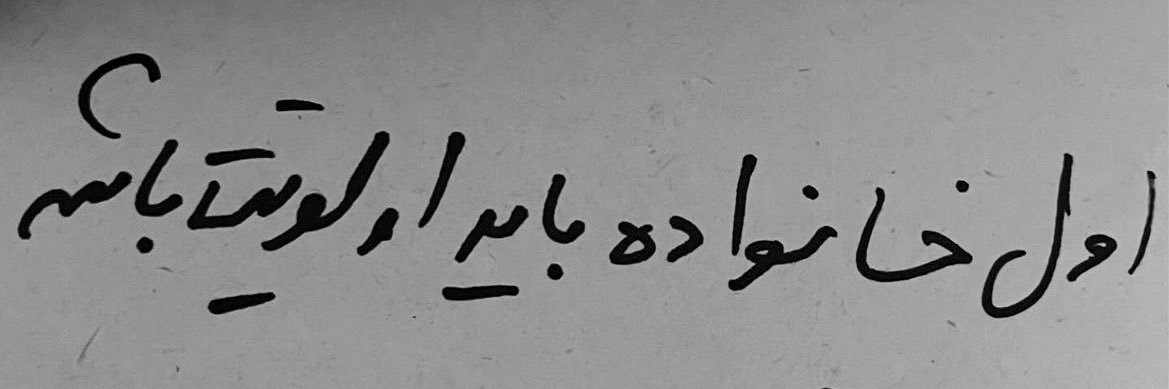 اول خانواده باید اولویت باشه